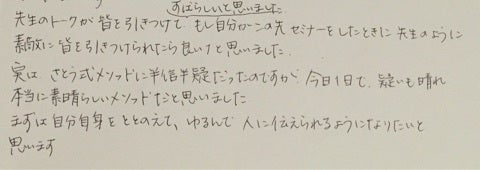 すばらしいと思いました。
先生のトークが 皆を引きつけて、もし自分がこの先 セミナーをしたときに 先生のように
素敵に 皆を引きつけられたら良いナと思いました。
実は、さとう式メソッドに半信半疑だったのですが、今日1日で、疑いも晴れ
本当に素晴らしいメソッドだと思いました
まずは自分自身をととのえて、ゆるんで 人に伝えられるようになりたいと
思います